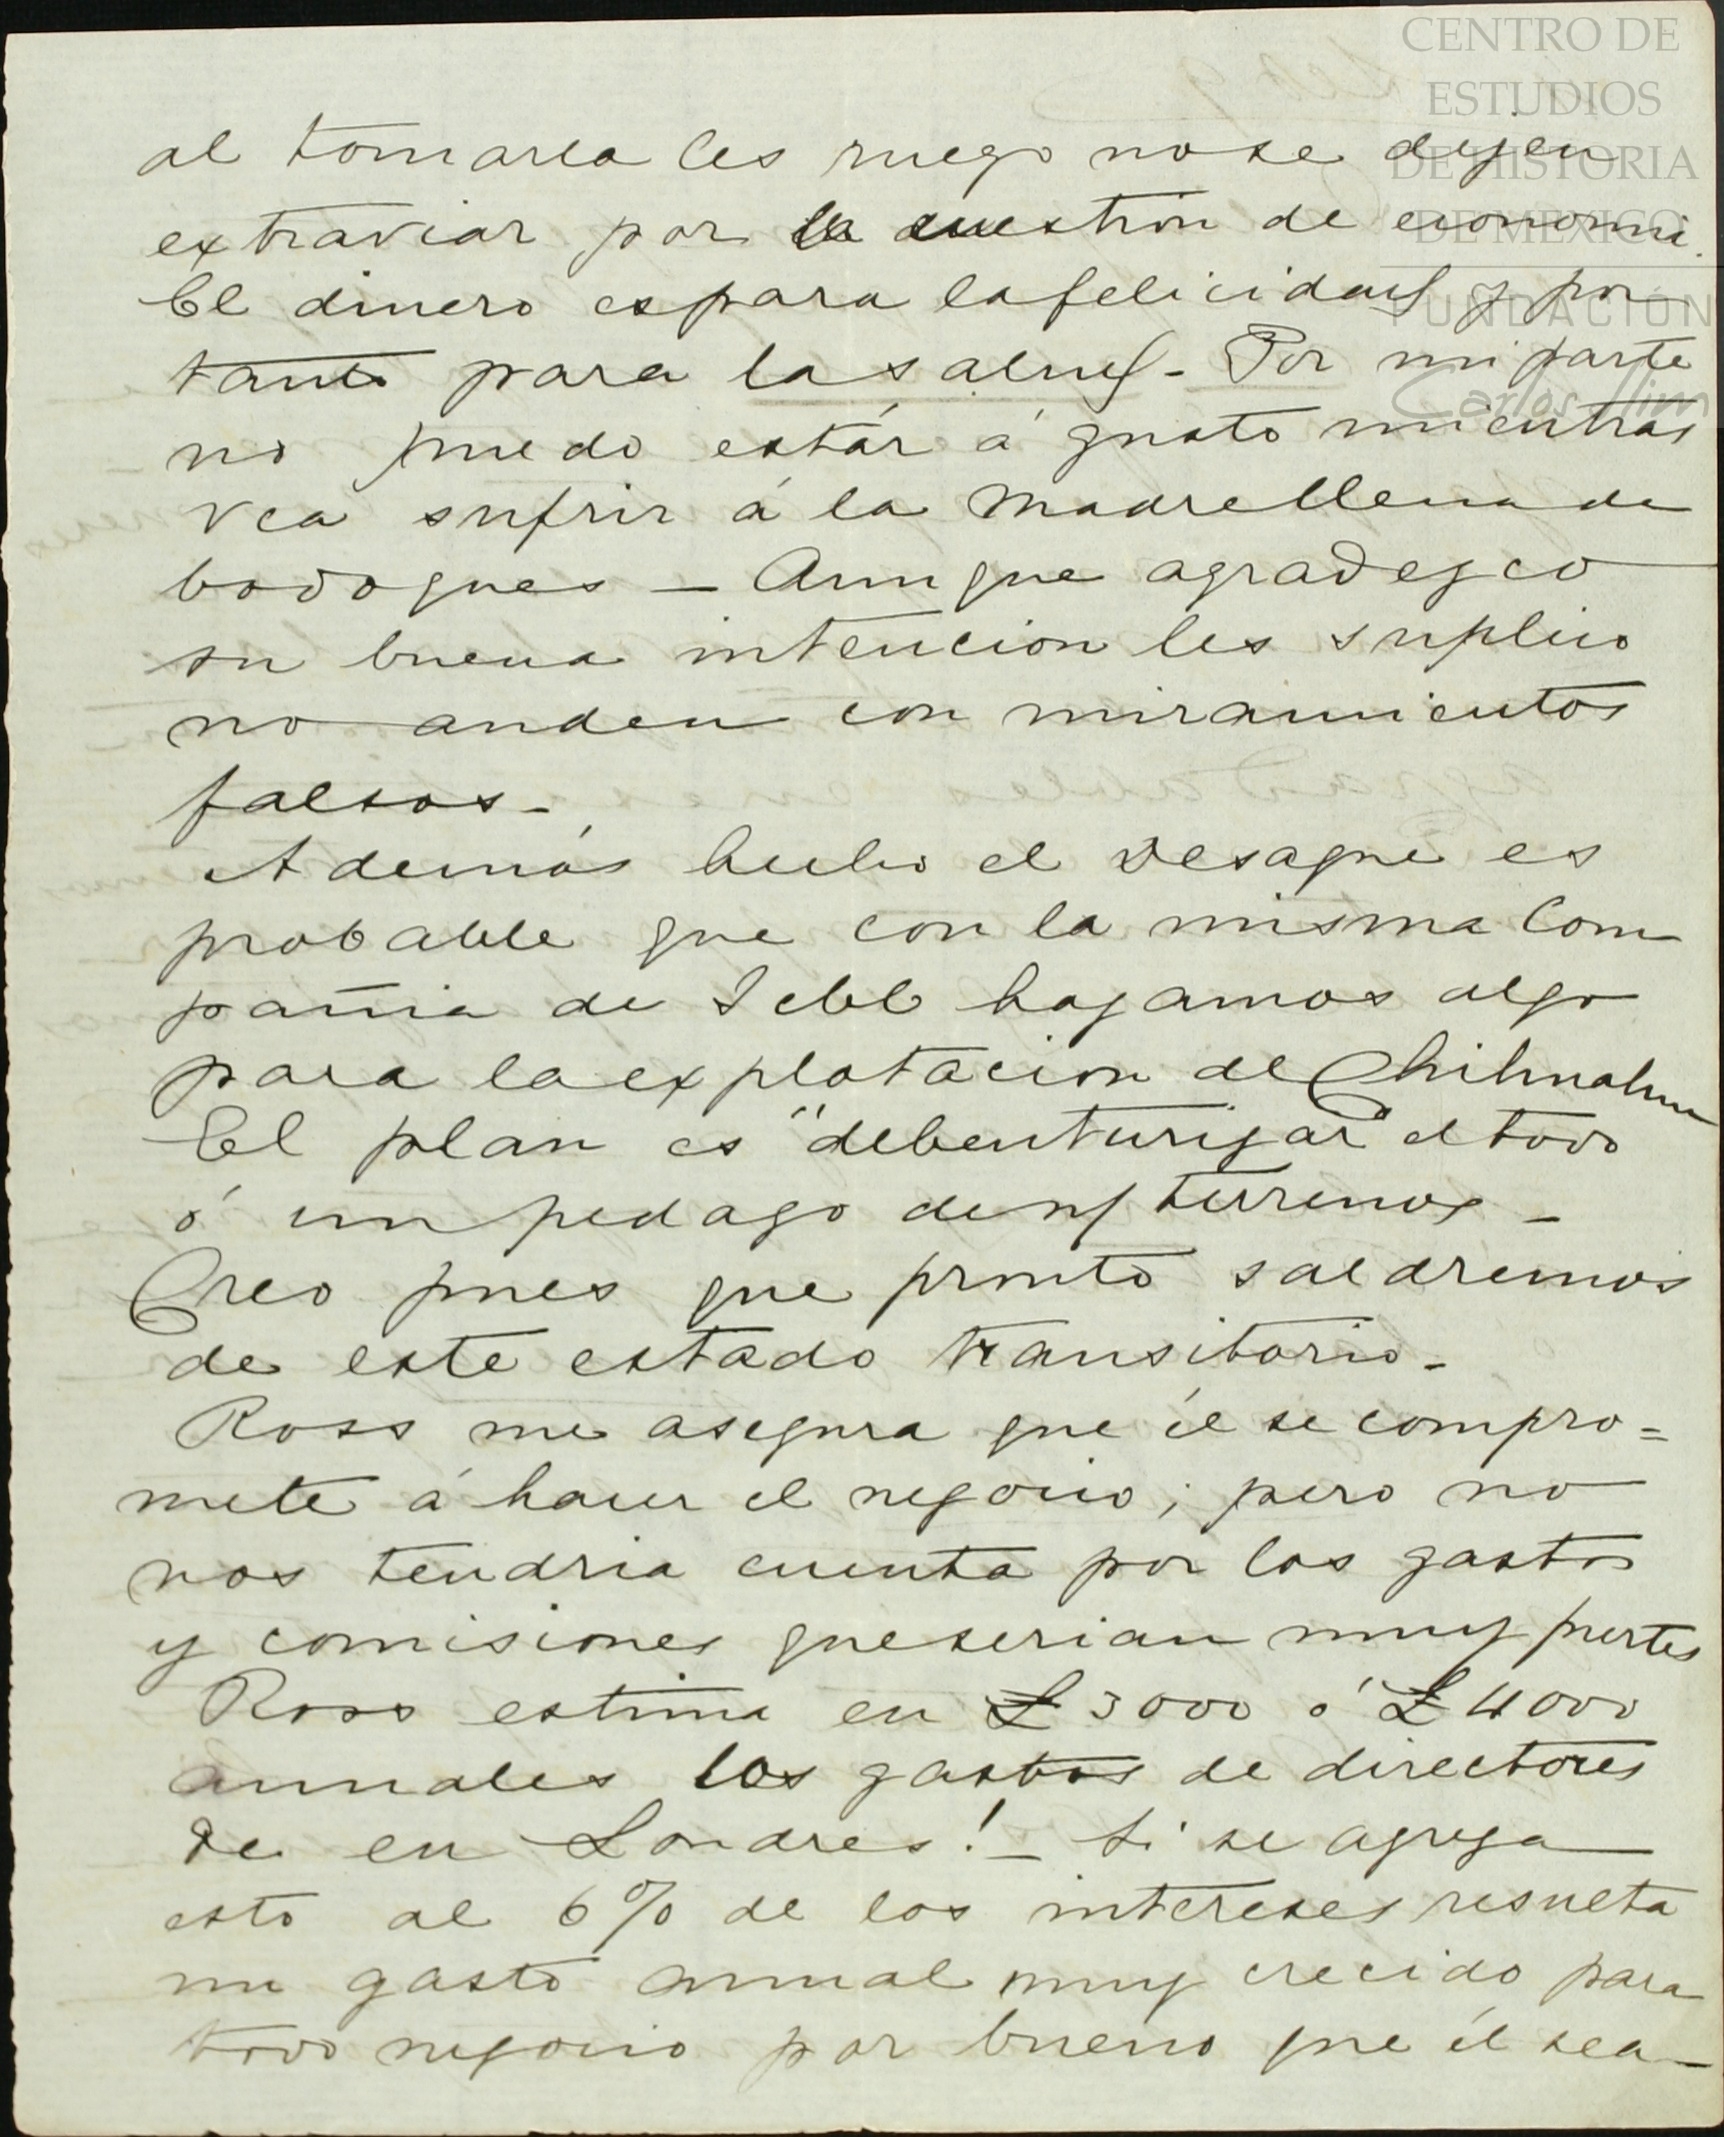 CENTRO DE
ESTUDIOS
DE HISTORIA
DE MÉXICO
FUNDACIÓN
Carlos Slim
al tomarla les ruego no se dejen
extraviar por la cuestion de economi.
El dinero es para la felicidad y por
tanto para la salud - Por mi parte
no puedo estár á gusto mientras
vea sufrir á la madre llena de
bodoques - Aunque agradezco
su buena intencion les suplico
no anden con miramientos
falsos -
Además hecho el Desagüe es
probable que con la misma Com
pañia de Jebb hagamos algo
para la explotacion de Chihuahua
El plan es "debenturizar" el todo
ó un pedazo de ns/ terrenos -
Creo pues que pronto saldremos
de este estado transitorio -
Ross me asegura que él se compro=
mete á hacer el negocio; pero no
nos tendria cuenta por los gastos
y comisiones que serian muy fuertes
Ross estima en £3000 ó £4000
anuales los gastos de directores
de en Londres! - Si se agrega
esto al 6% de los intereses resulta
un gasto anual muy crecido para
todo negocio por bueno que él sea -